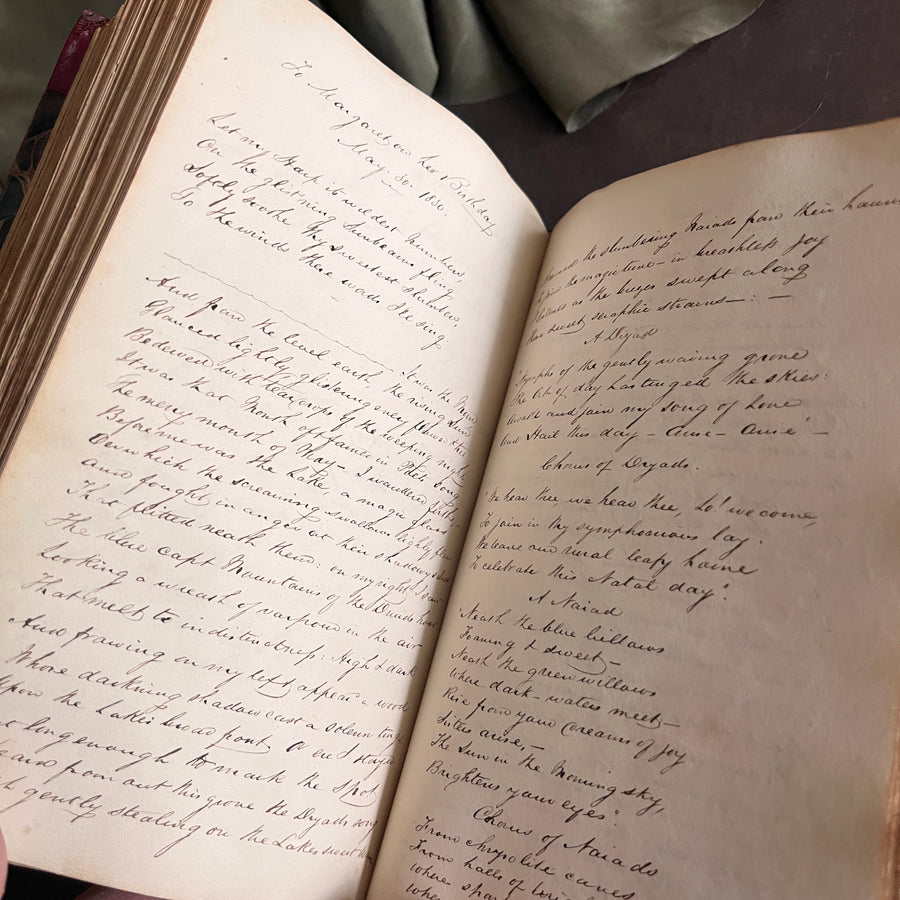 To Margaret on her Birthday
May. 30. 1830.
Let my Harp its wildest Numbers
On the glist'ning Sunbeams fling,
Softly soothe thy sweetest slumbers,
To the winds these words I'll sing
It was the Morn
And from the level earth, the rising Sun
Glanced lightly, glistening over flower & tree
Bedewed with teardrops of the weeping night
It was that Month off fancied in Poets song
The merry month of May — I wandered forth —
Before me was the Lake, a magic glass
On which the screaming swallows lightly
and fought in anger at their shadowy
That flitted neath them: on my right I saw
The blue capt Mountains of the
Looking a wreath of vapour in the air
That melts to indistinctness: High & dark
And frowning on my left appear'd a wood
Whose darkning shadow cast a solemn tinge
Upon the Lake's broad front, or ere I stayed
long enough to mark the spot
and from out this grove the Dryads song
gently stealing on the Lakes sweet
the slumbering Naiads from their
the magic tune — in breathless joy
as the breezes swept along
sweet seraphic strains — : —
A Dryad
Nymphs of the gently waving grove
The Orb of day has tinged the skies:
Awake and join my song of love
And Hail this day — arise — arise' —
Chorus of Dryads.
"We hear thee, we hear thee, Lo! we come,
To join in thy symphonious lay.
We leave our rural leafy home
To celebrate this Natal day".
A Naiad
"Neath the blue billows
Foaming & sweet —
Neath the green willows
Where dark-waters meet —
Rise from your dreams of joy
Sisters arise, —
The Sun in the Morning sky,
Brightens your eyes".
Chorus of Naiads
From chrysolite caves
From halls of
Where
Where